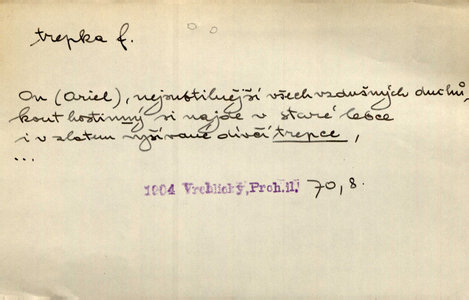 trepka f.
On (Ariel), nejsubtilnější všech vzdušných duchů,
kout hostinný si najde v staré lebce
i v zlatem vyšívané dívčí trepce,
...
1904 Vrchlický, Proh.il. 70, 8.